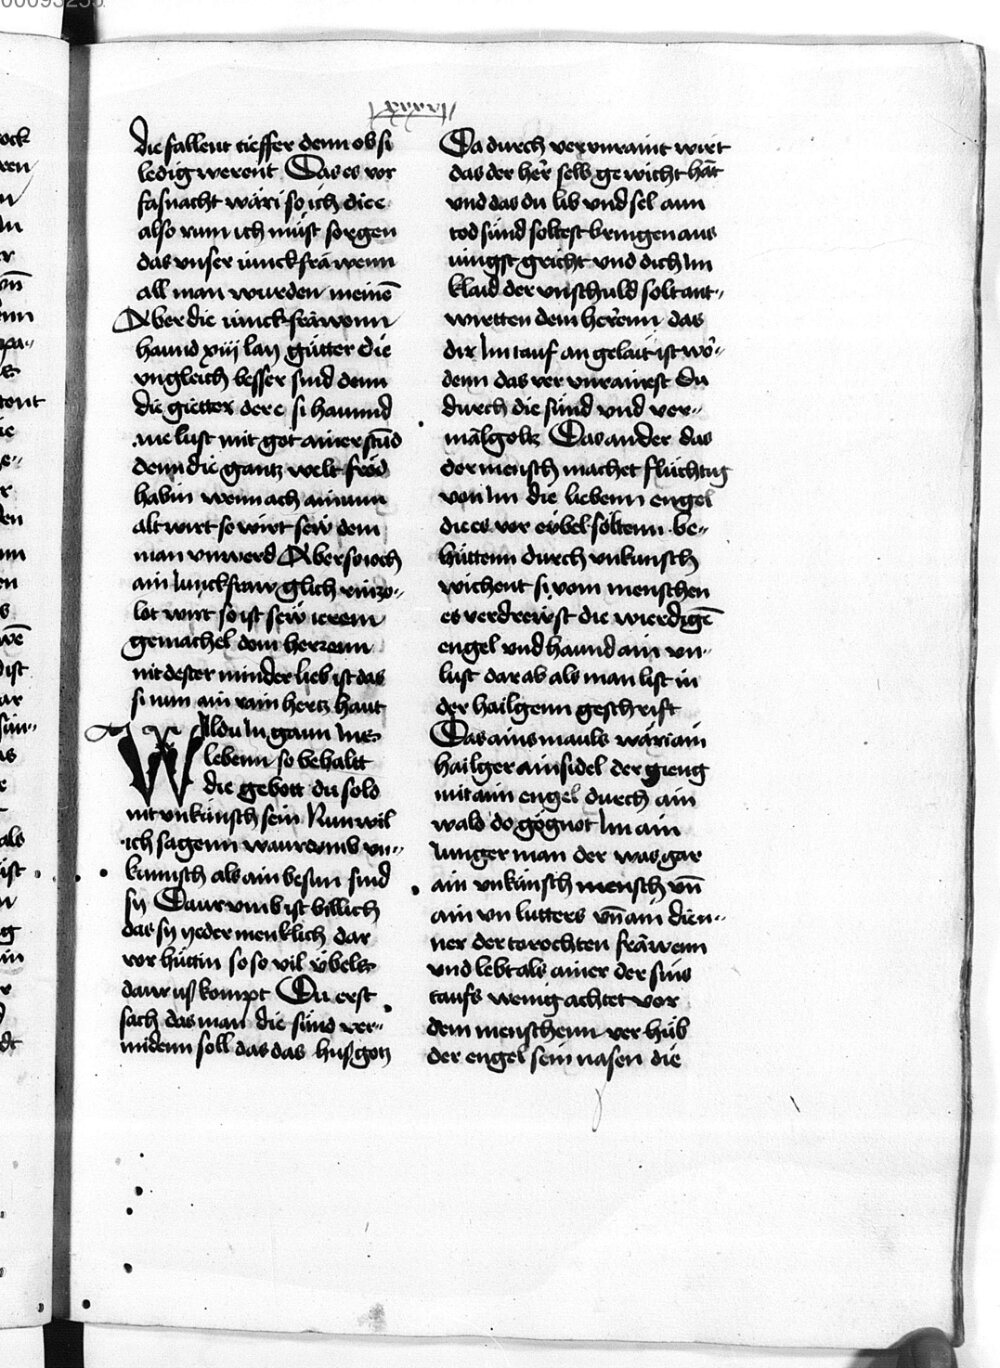 lxxxvi
die fallent tieffer denn ob si
ledig werent Das es vor
fasnacht wäri so ich dicc
also rum ich müst sorgen
das unser iunckfrawenn
all man wurden meinē
Aber die iunckfrawenn
haund xiij lay gütter die
ungleich besser sind denn
die gietter dere si haunnd
me lust mit got ainer stūd
denn die gantz welt fröd
habin wenn ach ainnm
alt wirt so wirt sew dem
man unwerd Aber so ioch
ain iunckfraw glich
lot wirt so ist sew ierem
gemachel dem herrenn
nit dester minder lieb ist das
si nun ain rain hertz haut
Wildu in gaun ins
lebenn so behaltt
die gebott du sold
nit unkünsch sein Nun wil
ich sagenn waurumb un
künnsch als ain besun sind
sy Daurumb ist billich
das sy yeder menklich dar
vor hüttin so so vil übels
daur uß kompt Du erst
sach das man die sünd ver
midenn soll das das huß gotz
Da durch verunraint wirt
das der her selb gewicht hāt
und das du lib und sel ann
tod sünd soltest bringen ans
iungst gricht und dich im
klaid der unschuld solt ant
wirtten dem herrenn das
dir im tauf an gelait ist wo
denn das verunrainest du
durch die sünd und ver
mālgoltz Das ander das
der mensch machet flüchtig
von im die liebenn engel
die es vor eybel soltenn be
hüttenn durch unkunsch
wichent si vom menschen
es verdrewst die wierdigē
engel und haund ain un
lust dar ab als man list in
der hailgenn geschrift
Das ains mauls wari ain
hailger ainsidel der gieng
mit aim engel durch ain
wald do gögnot im ain
iunger man der was gar
ain unkünsch mensch uñ
ain un lutters uñ ain dien
ner der torochten frāwenn
und lebt als ainer der sins
taufs wenig achtet vor
dem menschenn verhüb
der engel sein nasen die